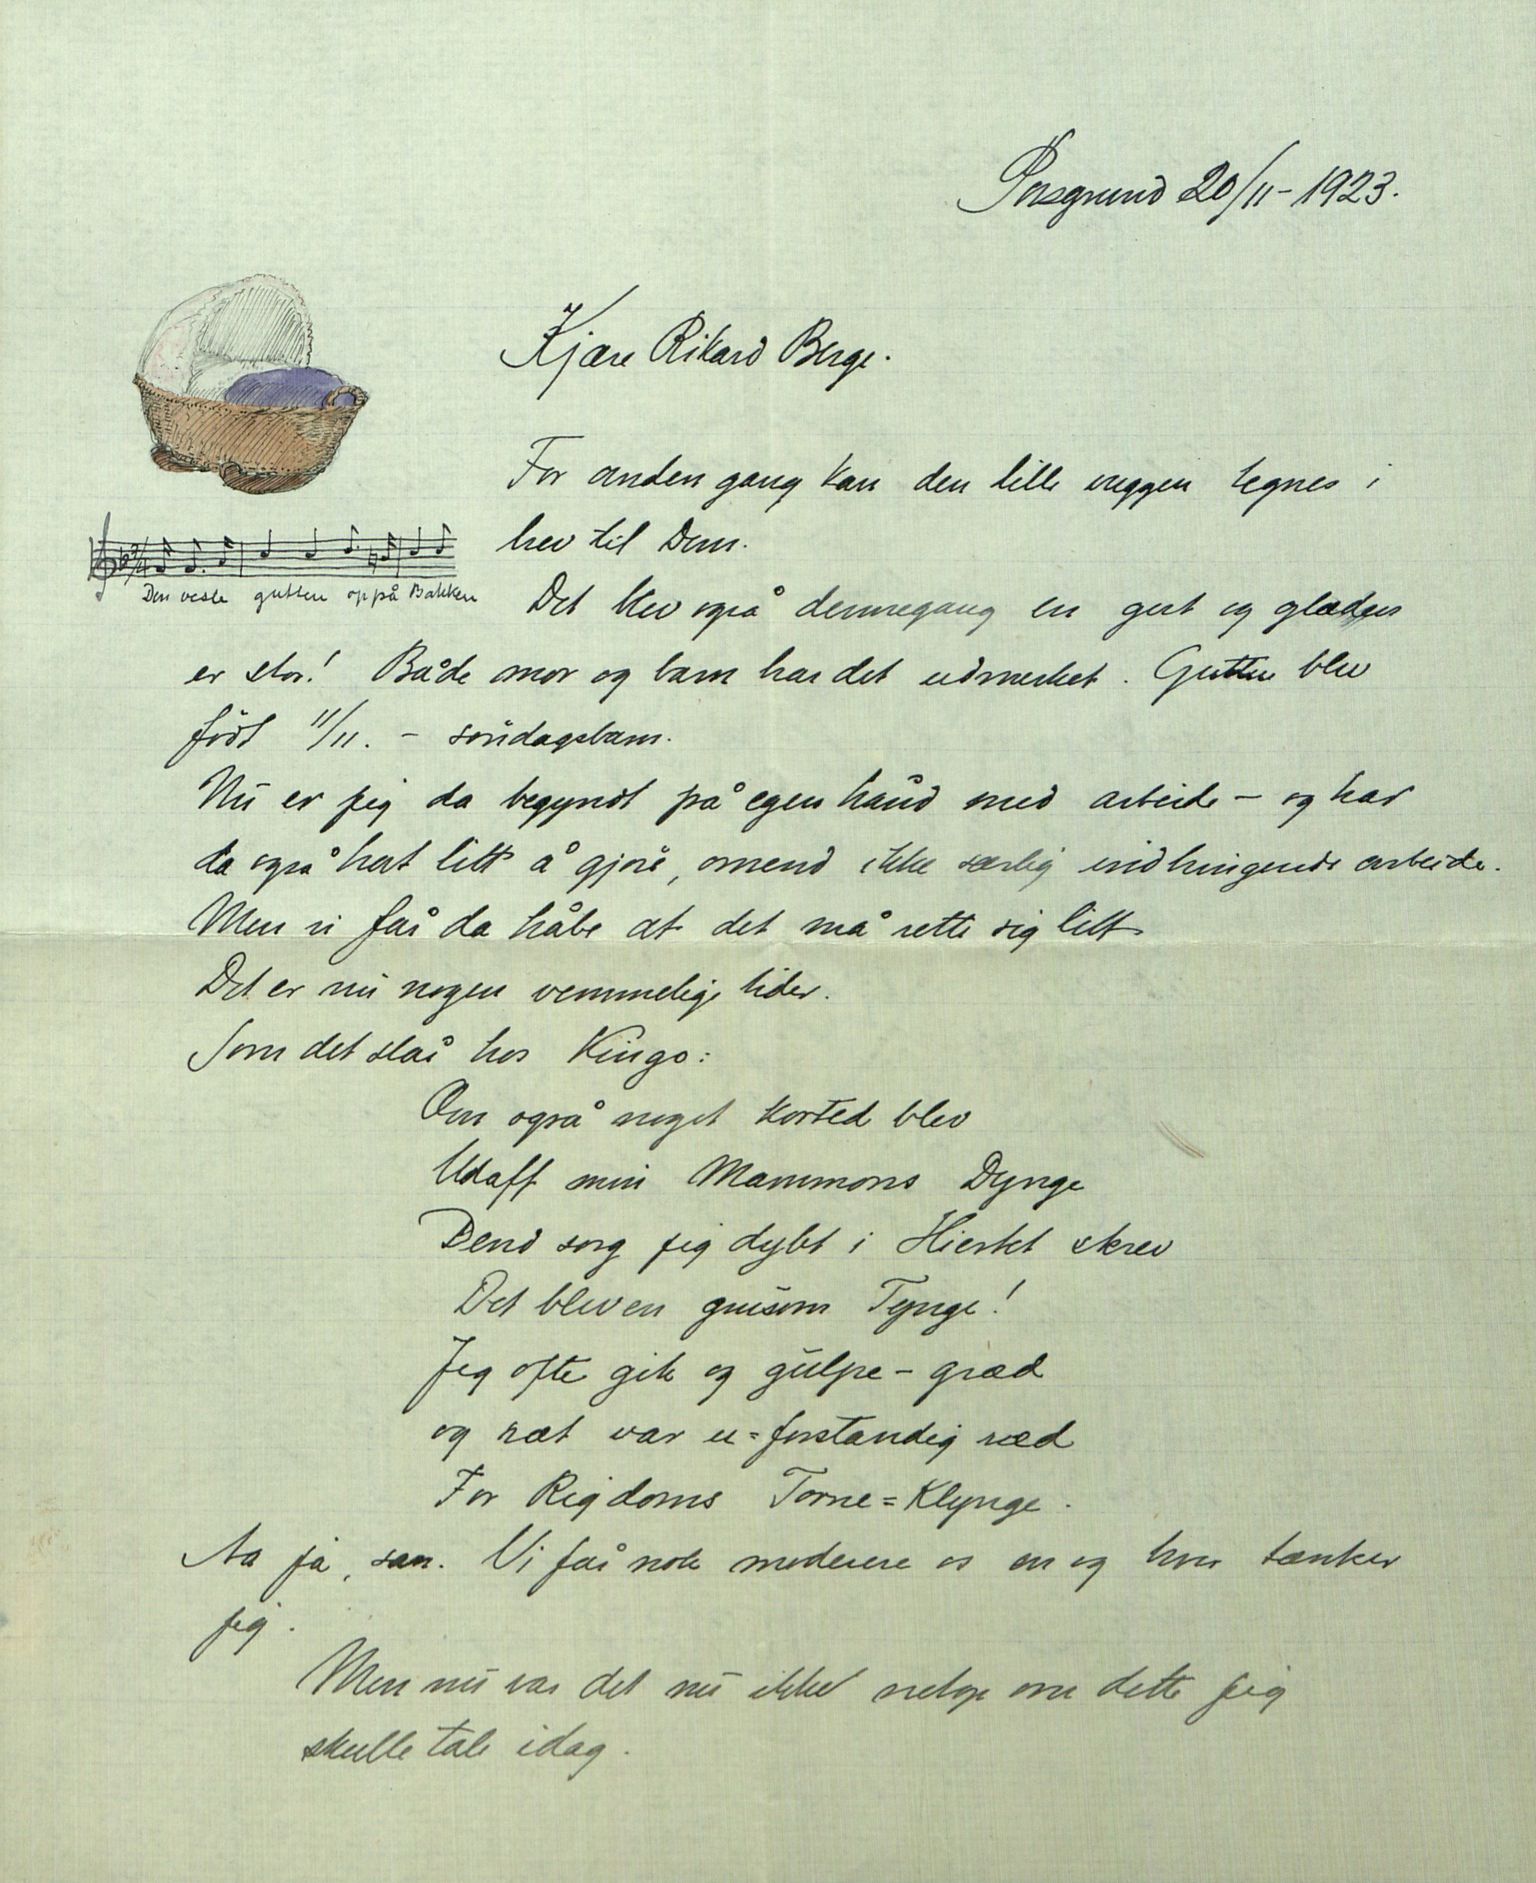 Porsgrund 20/11 - 1923.
Kjære Rikard Berge.
For anden gang kan den lille vuggen tegnes i
brev til Dem.
Den vesle gutten oppå Bakken
Det blev også dennegang en gut og glæden
er stor! Både mor og barn har det udmerket. Gutten blev
födt 11/11. - söndagsbarn.
Nu er jeg da begyndt på egen hånd med arbeide - og har
da også hat litt å gjöre, omend ikke særlig indbringende arbeide.
Men vi får da håbe at det må rette sig litt
Det er nu nogen vemmelige tider.
Som det står hos Kingo:
Om også noget korted blev
Udaff min Mammons Dynge
Dend sorg jeg dybt i Hiertet skrev
Det blev en grusom Tynge!
Jeg ofte gik og gulpe-græd
og ræt var u=forstandig ræd
For Rigdoms Torne=Klynge.
Aa ja, san. Vi får nok moderere os en og hver tænker
jeg.
Men nu var det nu ikke netop om dette jeg
skulle tale idag.